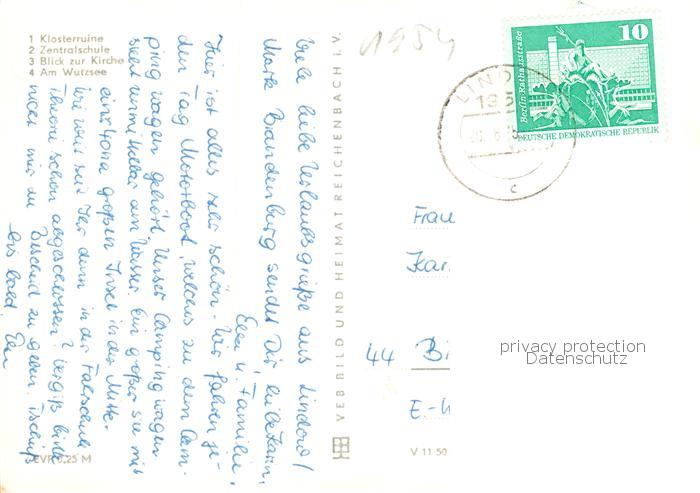 1 Klosterruine
2 Zentralschule
3 Blick zur Kirche
4 Am Wutzsee
Viele liebe Urlaubsgrüße aus Lindow/
Mark Brandenburg sendet Dir, liebe Karin,
Ellen u. Familie.
Hier ist alles sehr schön. Wir fahren je-
den Tag Motorboot, welches zu dem Cam-
pingwagen gehört. Unser Campingwagen
steht unmittelbar am Wasser. Ein großer See mit
einer großen Insel in der Mitte.
Wie weit seid Ihr denn in der Fahrschule
schon abgeschlossen? Vergiß bitte
nicht mir Bescheid zu geben. Tschüß
bis bald
EVP 0,25 M
VEB BILD UND HEIMAT REICHENBACH I. V.
V 11 50
1954
LIND
195
c
Berlin, Rathausstraße
10
DEUTSCHE DEMOKRATISCHE REPUBLIK
Frau
Kar
44 Bi
E.-
privacy protection
Datenschutz